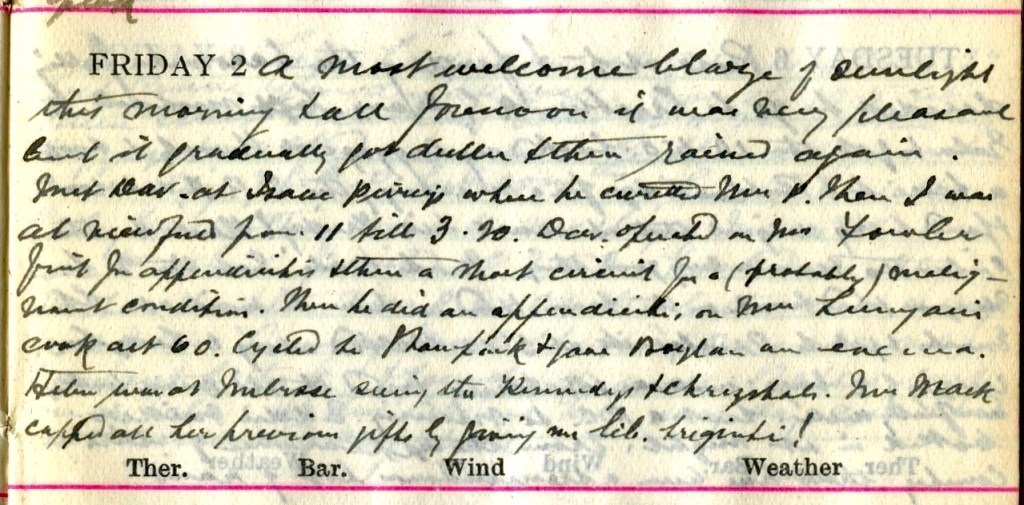 FRIDAY 2 A most welcome blaze of sunlight
this morning & all forenoon it was very pleasant
but it gradually got duller & then rained again.
Met Dav. at Isaac when he curetted Mrs P. Then I was
at from 11 till 3.20. Dav. operated on Mrs Fowler
first for appendicitis & then a short circuit for a (probably) malig-
nant condition. Then he did an appendicitis on Mrs
cook aet 60. Cycled to & gave Boylan an enema.
Helen was at Melrose seeing the Kennedys & . Mrs Mack
capped all her previous gifts by giving me lib.
Ther. Bar. Wind Weather